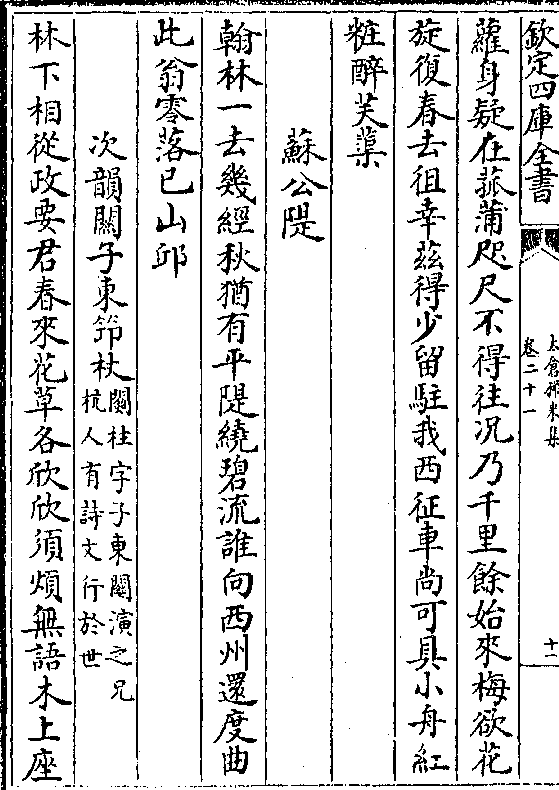 欽定四庫全書
太倉稊米集
卷二十一
十一
蘿身疑在菰蒲咫尺不得往况乃千里餘始來梅欲花
旋復春去徂幸茲得少留駐我西征車尚可具小舟紅
粧醉芙蕖
蘇公隄
翰林一去幾經秋猶有平隄繞碧流誰向西州還度曲
此翁零落已山邱
次韻關子東筇杖關柱字子東關演之兄
杭人有詩文行於世
林下相從政要君春來花草各欣欣須煩無語木上座